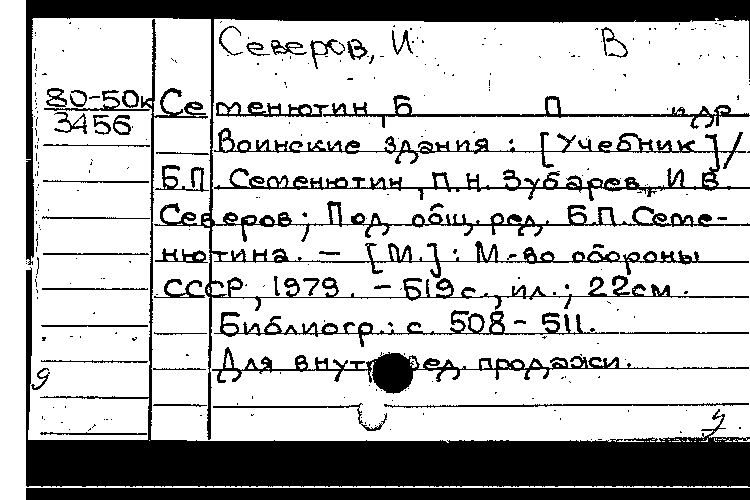 Северов, И В
80-50к
3456
Семенютин, Б П и др
Воинские здания : [Учебник]/
Б.П. Семенютин, П.Н. Зубарев, И.В.
Северов; Под общ. ред. Б.П. Семе-
нютина. — [М.] : М-во обороны
СССР, 1979. - 519с., ил.; 22см.
Библиогр.: с. 508-511.
Для внутривед. продажи.
9